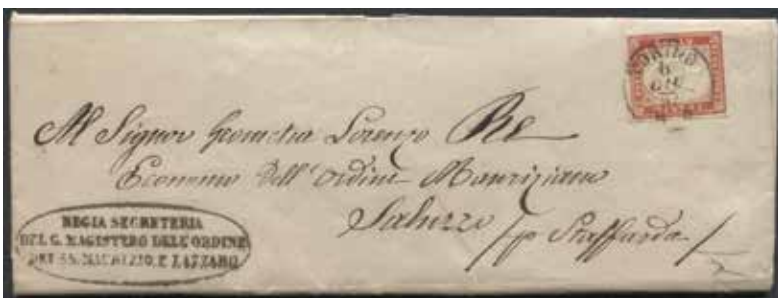 TORINO
6
GIU
Al Signor Geometra Lorenzo Re
Economo dell'Ordine Mauriziano
Saluzzo / p Staffarda /
REGIA SECRETERIA
DEL G. MAGISTERO DELL'ORDINE
DEI SS. MAURIZIO, E LAZZARO